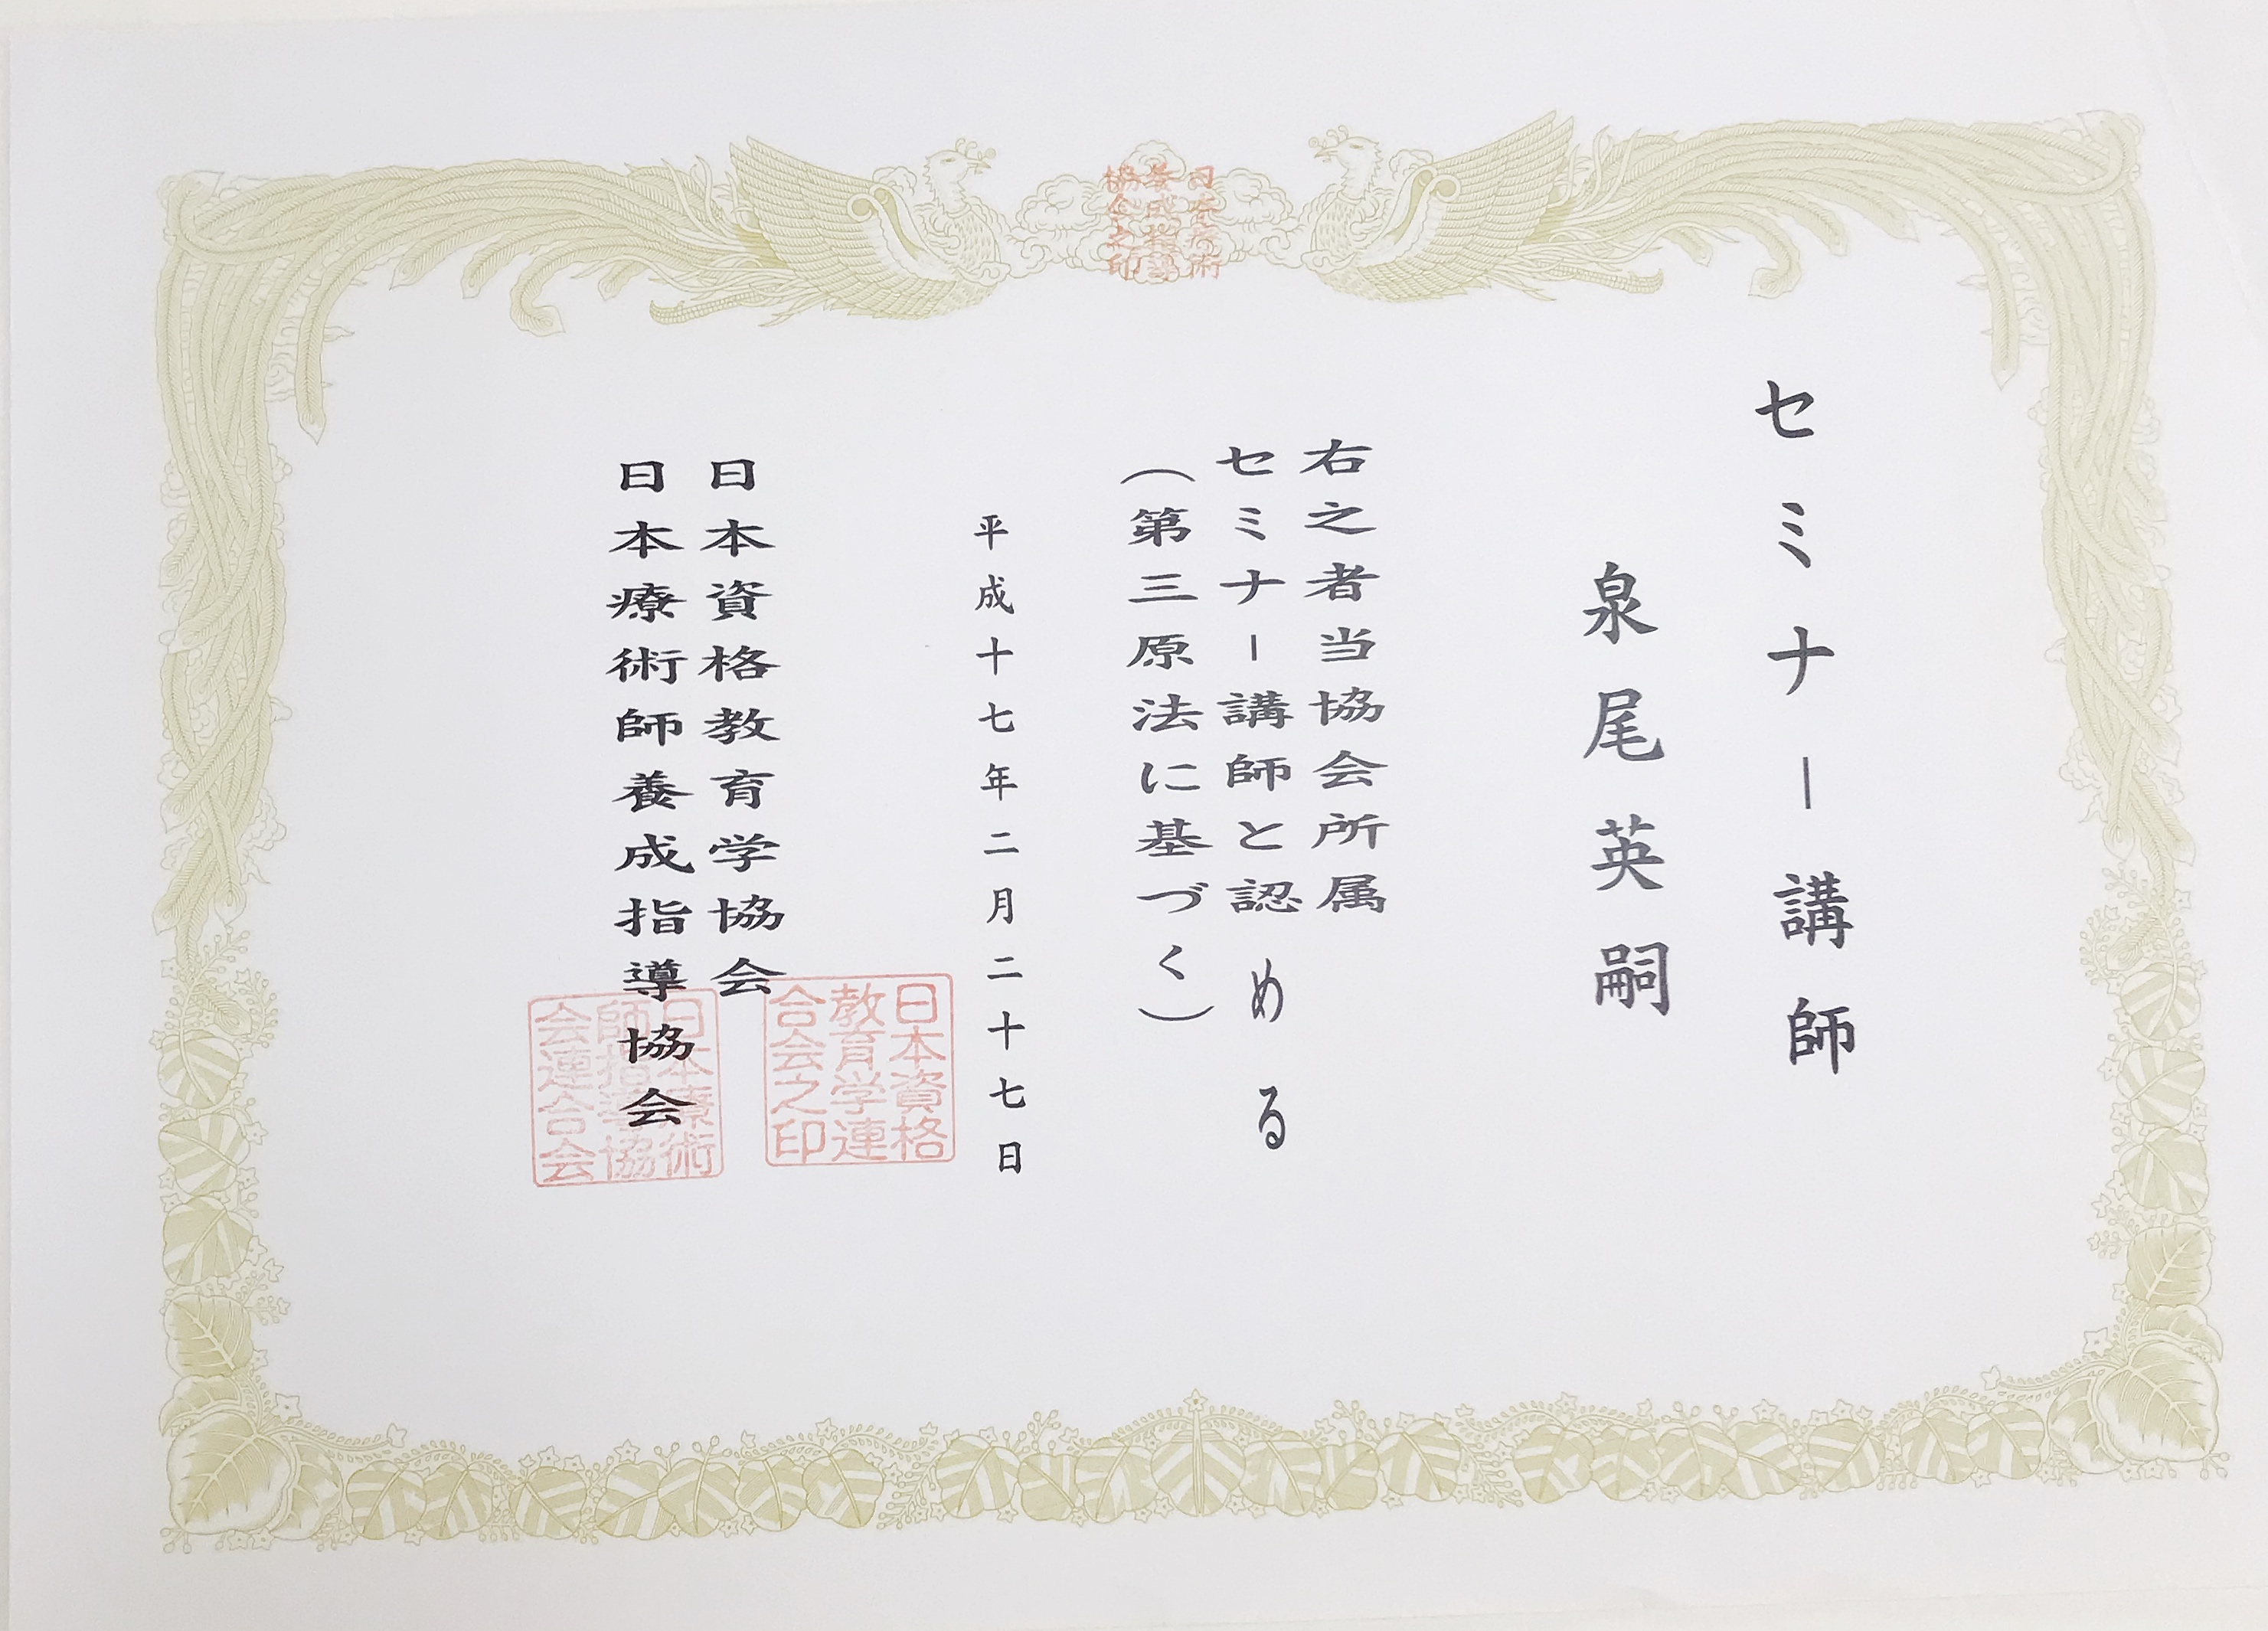 セミナー講師
泉尾英嗣
右之者当協会所属
セミナー講師と認める
(第三原法に基づく)
平成十七年二月二十七日
日本資格教育学協会
日本療術師養成指導協会
日本資格
教育学連
合会之印
日本療術
師指導協
会連合会